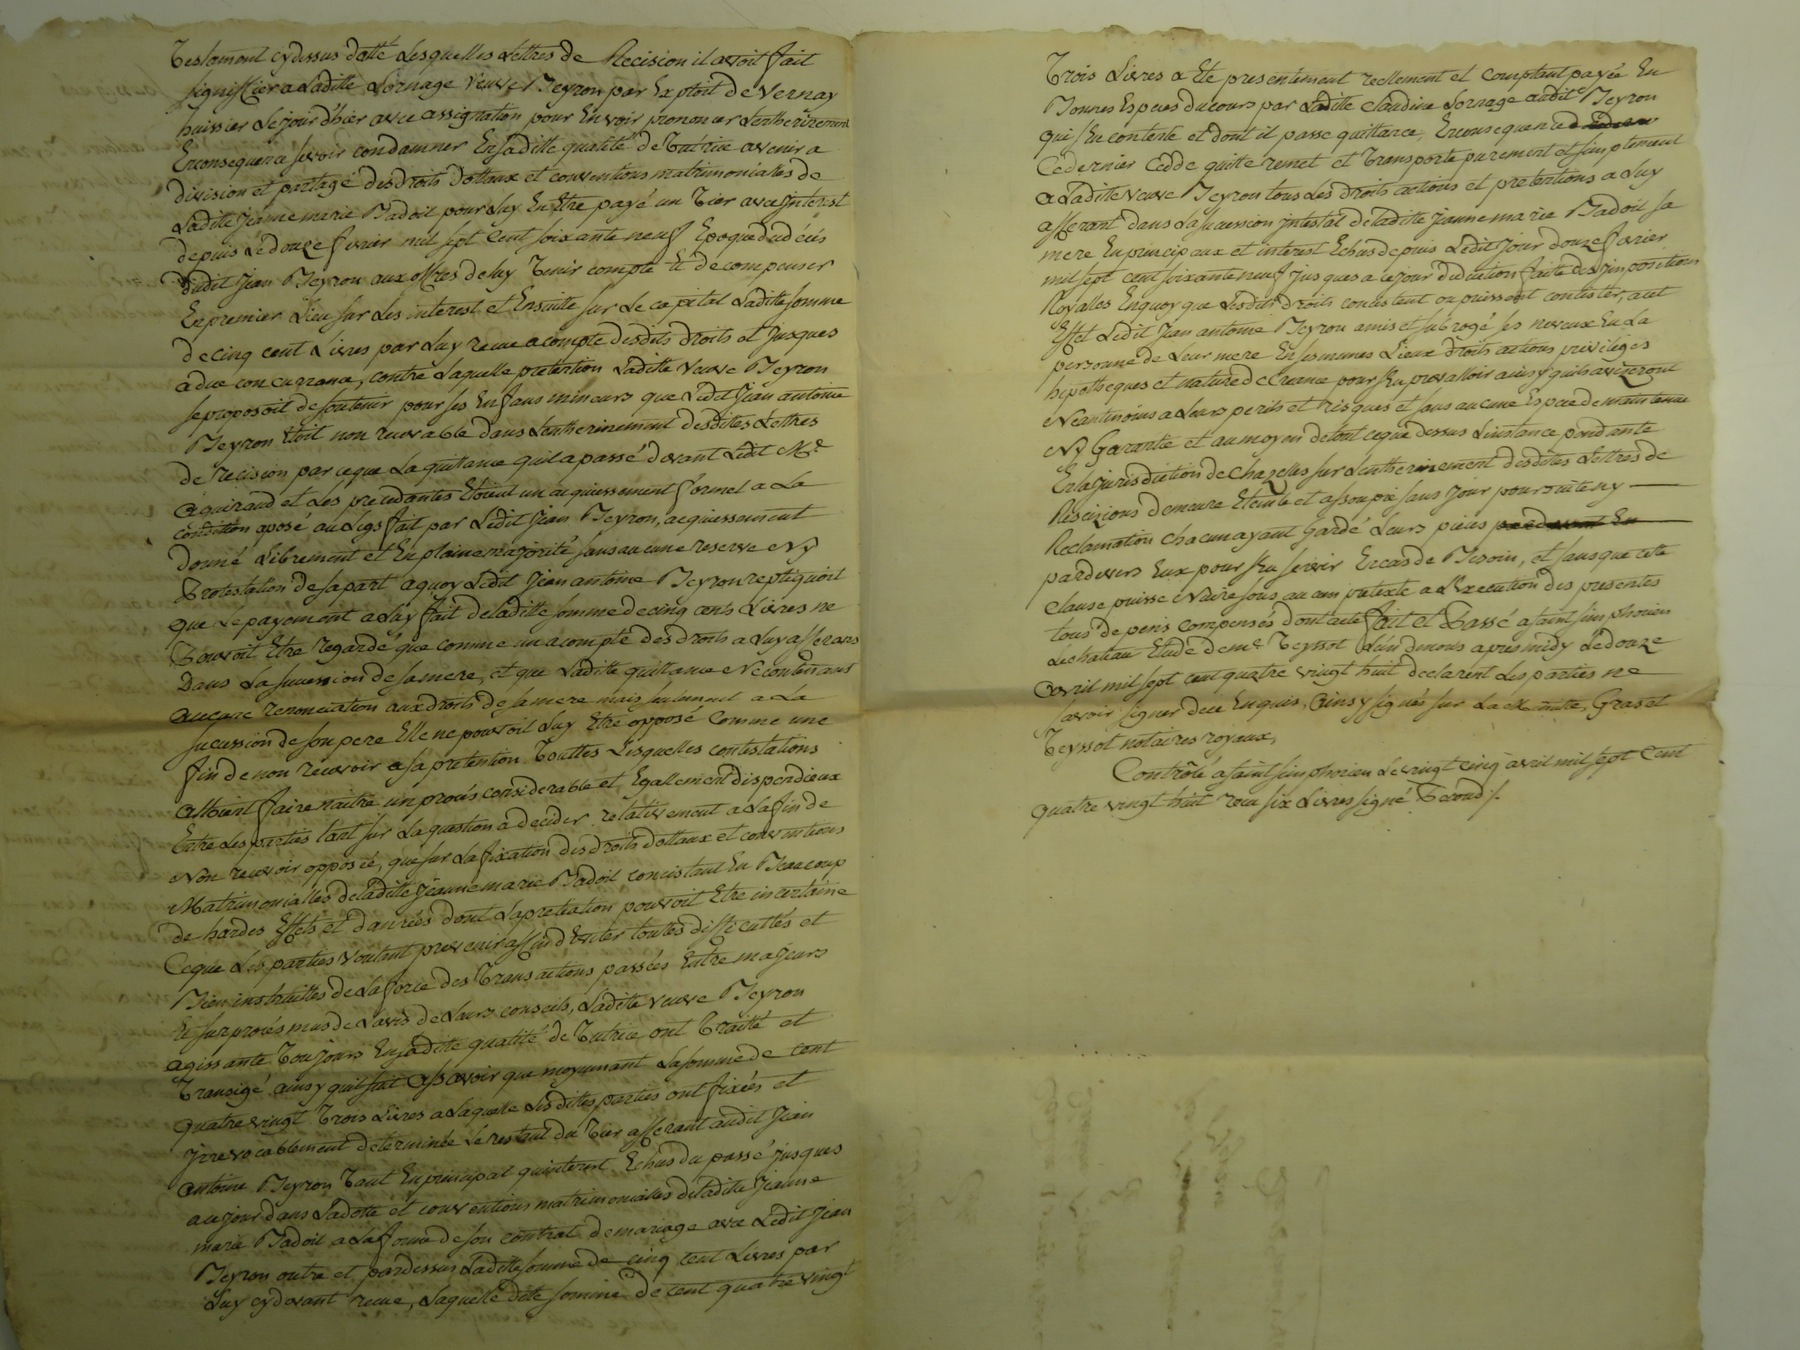 Testament cydessus datté Lesquelles Lettres de Recision il avoit fait
signiffier a Laditte Lornage veuve Peyron par Exploit de vernay
huissier Le jour d'hier avec assignation pour En voir prononcer Lentherinement
En consequence se voir condamner En saditte qualité de Tutrice a venir a
division et partage des droits dottaux et conventions matrimonialles de
Laditte Jeanne marie Badoil pour Luy En Etre payé un Tier avec Interest
depuis Le douze fevrier mil sept Cent soixante neuf Epoque du déces
dudit Jean Peyron aux offres de luy Tenir compte et de compenser
En premier Lieu sur Les interest et Ensuitte sur Le capital Laditte somme
de cinq cent Livres par Luy recue acompte desdits droits et jusques
a due concurrance, contre Laquelle pretention Laditte veuve Peyron
se proposoit de soutenir pour ses Enfans mineurs que Ledit Jean antoine
Peyron Etoit non recevable dans Lentherinement desdites Lettres
de recision par ceque La quittance quil a passé devant Ledit Me
Guiraud et Les precedantes Etoient un acquiessement formel a La
condition aposé au Legs fait par Ledit Jean Peyron, acquiessement
donné Librement et En plaine majorité sans aucune reserve Ny
Protestation de sa part a quoy Ledit Jean antoine Peyron repliquoit
que Le payement a Luy fait de laditte somme de cinq cents Livres ne
Pouvoit Etre regardé que comme un acompte des droits a Luy afferans
Dans La succession de sa mere, et que Laditte quittance Ne contenant
aucune renonciation aux droits de sa mere mais seulement a La
sucession de son pere Elle ne pouvoit Luy Etre opposé Comme une
fin de non recevoir a sa pretention Touttes Lesquelles contestations
alloient faire naitre un procés considerable et Egallement dispendieux
Entre Les parties tant sur La question a decider relativement a La fin de
Non recevoir opposée, que sur La fixation des droits dottaux et conventions
Matrimonialles de laditte Jeanne marie Badoil concistant En Beaucoup
de hardes Effets et danrées dont Lapretiation pouvoit Etre incertaine
Ceque Les parties voulant prevenir affin dEviter touttes difficultés et
Bien instruittes de La force des Transactions passées Entre majeurs
Et sur procés mus de Lavis de Leurs conseils, Laditte veuve Peyron
agissante Toujours En saditte qualité de Tutrice ont Traitté et
Transigé ainsy quil suit assavoir que moyennant La somme de cent
quatre vingt Trois Livres a Laquelle Lesdites parties ont fixées et
irrevocablement determinée Le restant du Tier afferant audit Jean
antoine Peyron Tant En principal quinterest Echus du passé jusques
au jour dans Ladotte et conventions matrimonialles de laditte Jeanne
marie Badoil a La forme de son contrat de mariage avec Ledit Jean
Peyron outre et pardessus Laditte somme de cinq cent Livres par
Luy cydevant recue, Laquelle dite somme de cent quatre vingt
Trois Livres a Ete presentement reellement et comptant payée En
Bonnes Especes du cours par Laditte Claudine Lornage audit Peyron
qui s'En contente et dont il passe quittance, En consequence
Ce dernier Cedde quitte remet et Transporte purement et simplement
a Laditte veuve Peyron tous Les droits actions et pretentions a Luy
afferant dans La sucession intestat de ladite Jeanne marie Badoil sa
mere En principaux et interest Echus depuis Ledit jour douze fevrier
mil sept cent soixante neuf jusques a ce jour deduction faite des impositions
Royalles En quoy que Lesdits droits concistent ou puissent concister, a cet
Effet Ledit Jean antoine Peyron a mis et subrogé ses neveux En La
personne de Leur mere En ses mêmes Lieux droits actions privileges
hipotheques et nature de Creance pour s'En prevalloir ainsy quils aviseront
Neantmoins a Leurs perils et risques et sans aucune Espece de maintenue
Ny Garentie et au moyen de tout ceque dessus Linstance pendante
En la jurisdiction de Chazelles sur Lentherinement desdites Lettres de
Rescizions demeure Eteinte et assoupie sans jour poursuite ny
Reclamation chacun ayant Gardé Leurs pieces
pardevers Eux pour s'En servir En cas de Besoin, et sans que cette
Clause puisse Nuire sous aucun pretexte a L'Execution des presentes
tous depens compensés dont acte fait et Passé a saint simphorien
Le chateau Etude de me Teyssot L'un de nous apres midy Le douze
avril mil sept cent quatre vingt huit declarent Les parties ne
savoir signer de ce Enquis, ainsy signés sur La Minutte, Gras et
Teyssot notaires royaux,
Contrôlé a saint simphorien Le vingt cinq avril mil sept Cent
quatre vingt huit recu six Livres signé Second